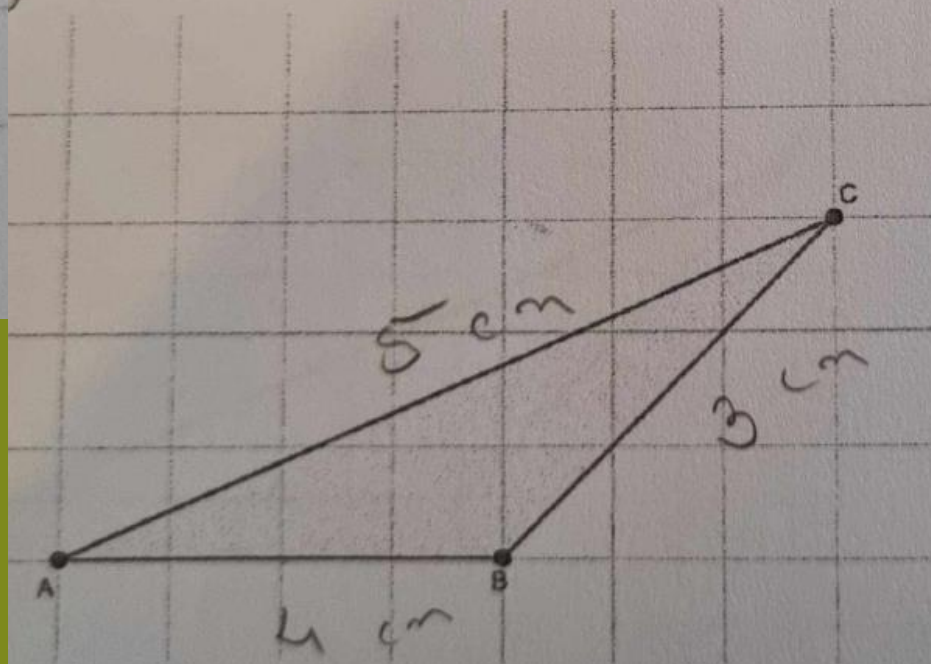 C
5 cm
3 cm
A
B
4 cm